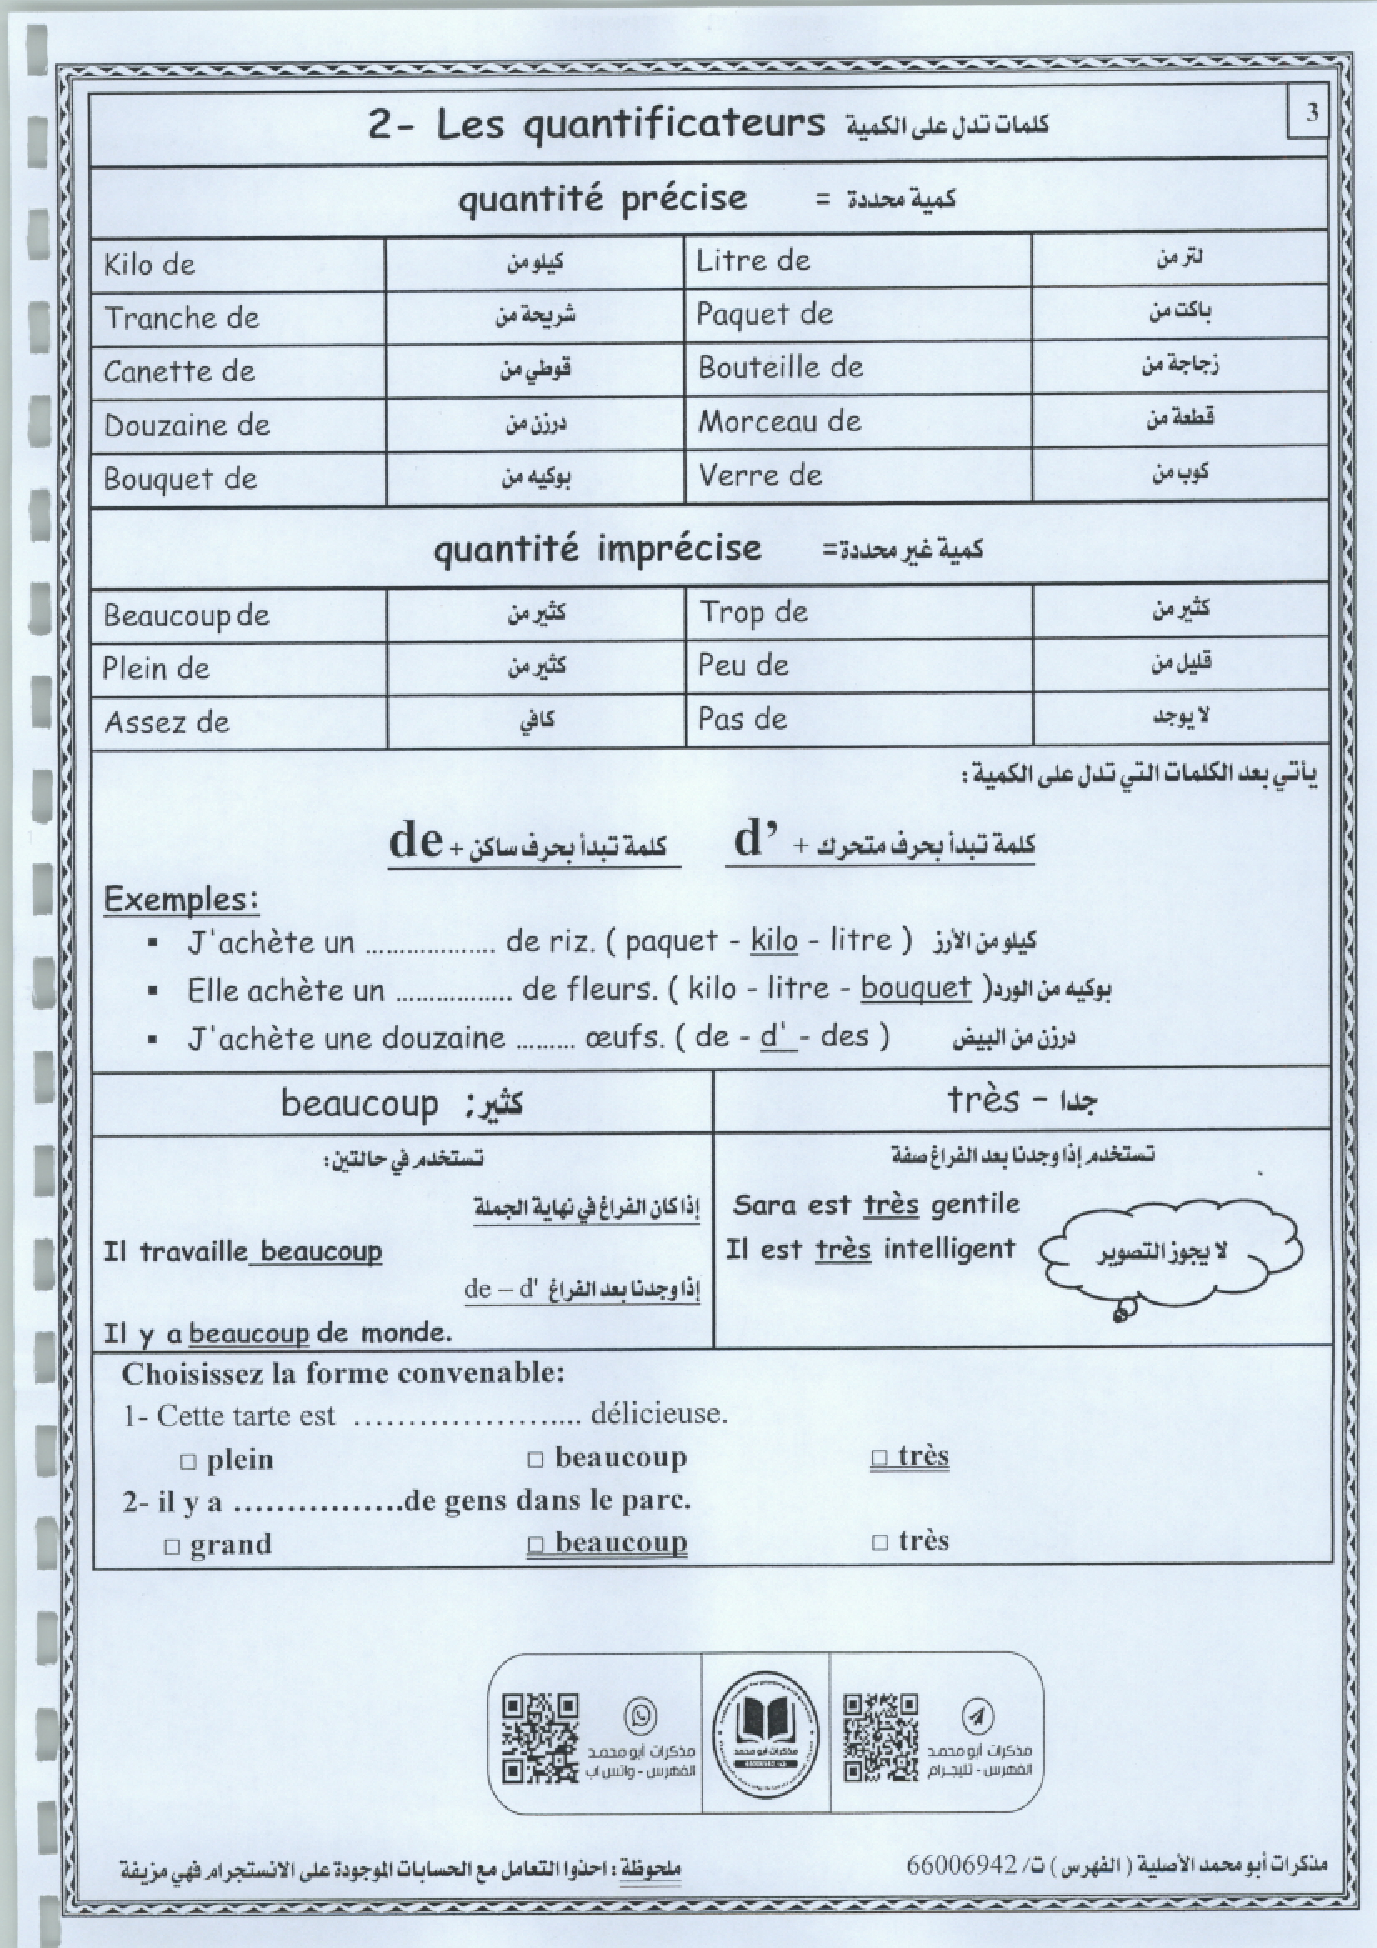 3
2- Les quantificateurs كلمات تدل على الكمية
quantité précise = كمية محددة
Kilo de كيلو من Litre de لتر من
Tranche de شريحة من Paquet de باكت من
Canette de قوطي من Bouteille de زجاجة من
Douzaine de درزن من Morceau de قطعة من
Bouquet de بوكيه من Verre de كوب من
quantité imprécise =كمية غير محددة
Beaucoup de كثير من Trop de كثير من
Plein de كثير من Peu de قليل من
Assez de كافي Pas de لا يوجد
يأتي بعد الكلمات التي تدل على الكمية :
de + كلمة تبدأ بحرف ساكن d’ + كلمة تبدأ بحرف متحرك
Exemples:
▪ J'achète un ................... de riz. ( paquet - kilo - litre ) كيلو من الأرز
▪ Elle achète un ................. de fleurs. ( kilo - litre - bouquet ) بوكيه من الورد
▪ J'achète une douzaine ......... œufs. ( de - d' - des ) درزن من البيض
beaucoup : كثير
تستخدم في حالتين :
إذا كان الفراغ في نهاية الجملة
Il travaille beaucoup
إذا وجدنا بعد الفراغ de – d'
Il y a beaucoup de monde.
très – جدا
تستخدم إذا وجدنا بعد الفراغ صفة
Sara est très gentile
Il est très intelligent
لا يجوز التصوير
Choisissez la forme convenable:
1- Cette tarte est ........................ délicieuse.
□ plein □ beaucoup □ très
2- il y a ................de gens dans le parc.
□ grand □ beaucoup □ très
مذكرات أبو محمد
الفهرس - واتس اب
مذكرات أبو محمد
مذكرات أبو محمد
الفهرس - تليجرام
مذكرات أبو محمد الأصلية ( الفهرس ) ت/ 66006942
ملحوظة : احذوا التعامل مع الحسابات الموجودة على الانستجرام فهي مزيفة